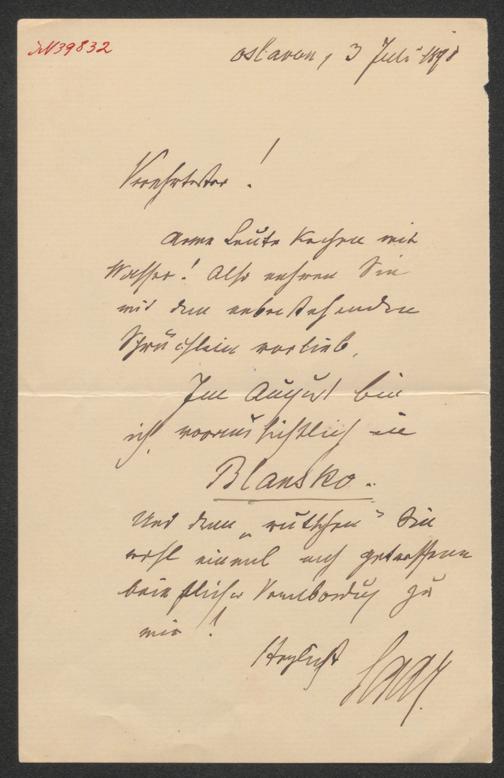 IN 39832
Oslavan, 3 Juli 1890
Verehrtester!
Arme Leute kochen mit
Wasser! Also nehmen Sie
mit dem nebenstehenden
Sprüchlein vorlieb.
Im August bin
ich voraussichtlich in
Blansko.
Und dann „rutschen" Sie
wohl einmal nach getroffener
brieflicher Vereinbarung zu
mir!
Herzlichst
Saar.